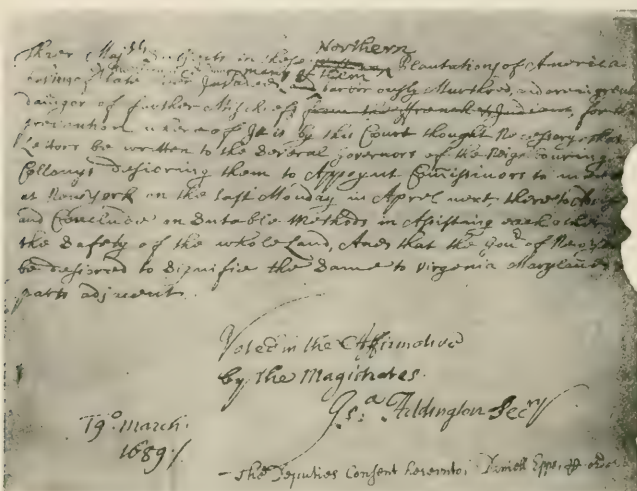 Northern
Their Maj.ties Subjects in these Plantations of America
having of late been Invaded, many of them barbarously Murthred, and are in great
danger of further Mischiefs from the French & Indians, for the
prevention whereof It is by this Court thought Necessary, that
Letters be written to the Several Governors of the Neighbouring
Collonys desiring them to Appoynt Comissioners to meet
at New York on the last Monday in April next there to
and Conclude on Sutable Methods in Assisting each other
the Safety of the whole Land, And that the Gov.r of New York
be desired to Signifie the Same to Virginia Maryland
parts adjacent
Voted in the Affirmative
by the Magistrates.
Is.a Addington Secry
19.o March.
1689./
— The Deputies Consent hereunto. Daniell Epps,